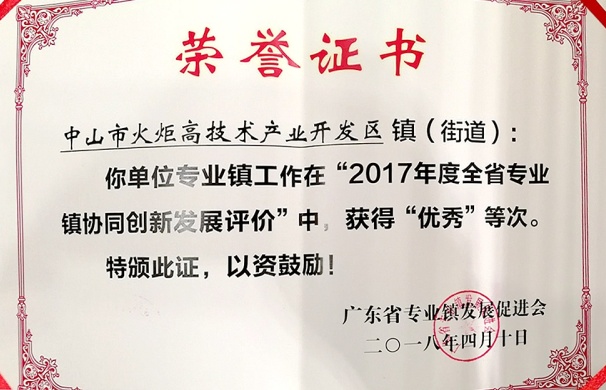 荣誉证书
中山市火炬高技术产业开发区 镇（街道）:
你单位专业镇工作在“2017年度全省专业
镇协同创新发展评价”中，获得“优秀”等次。
特颁此证，以资鼓励！
广东省专业镇发展促进会
二〇一八年四月十日